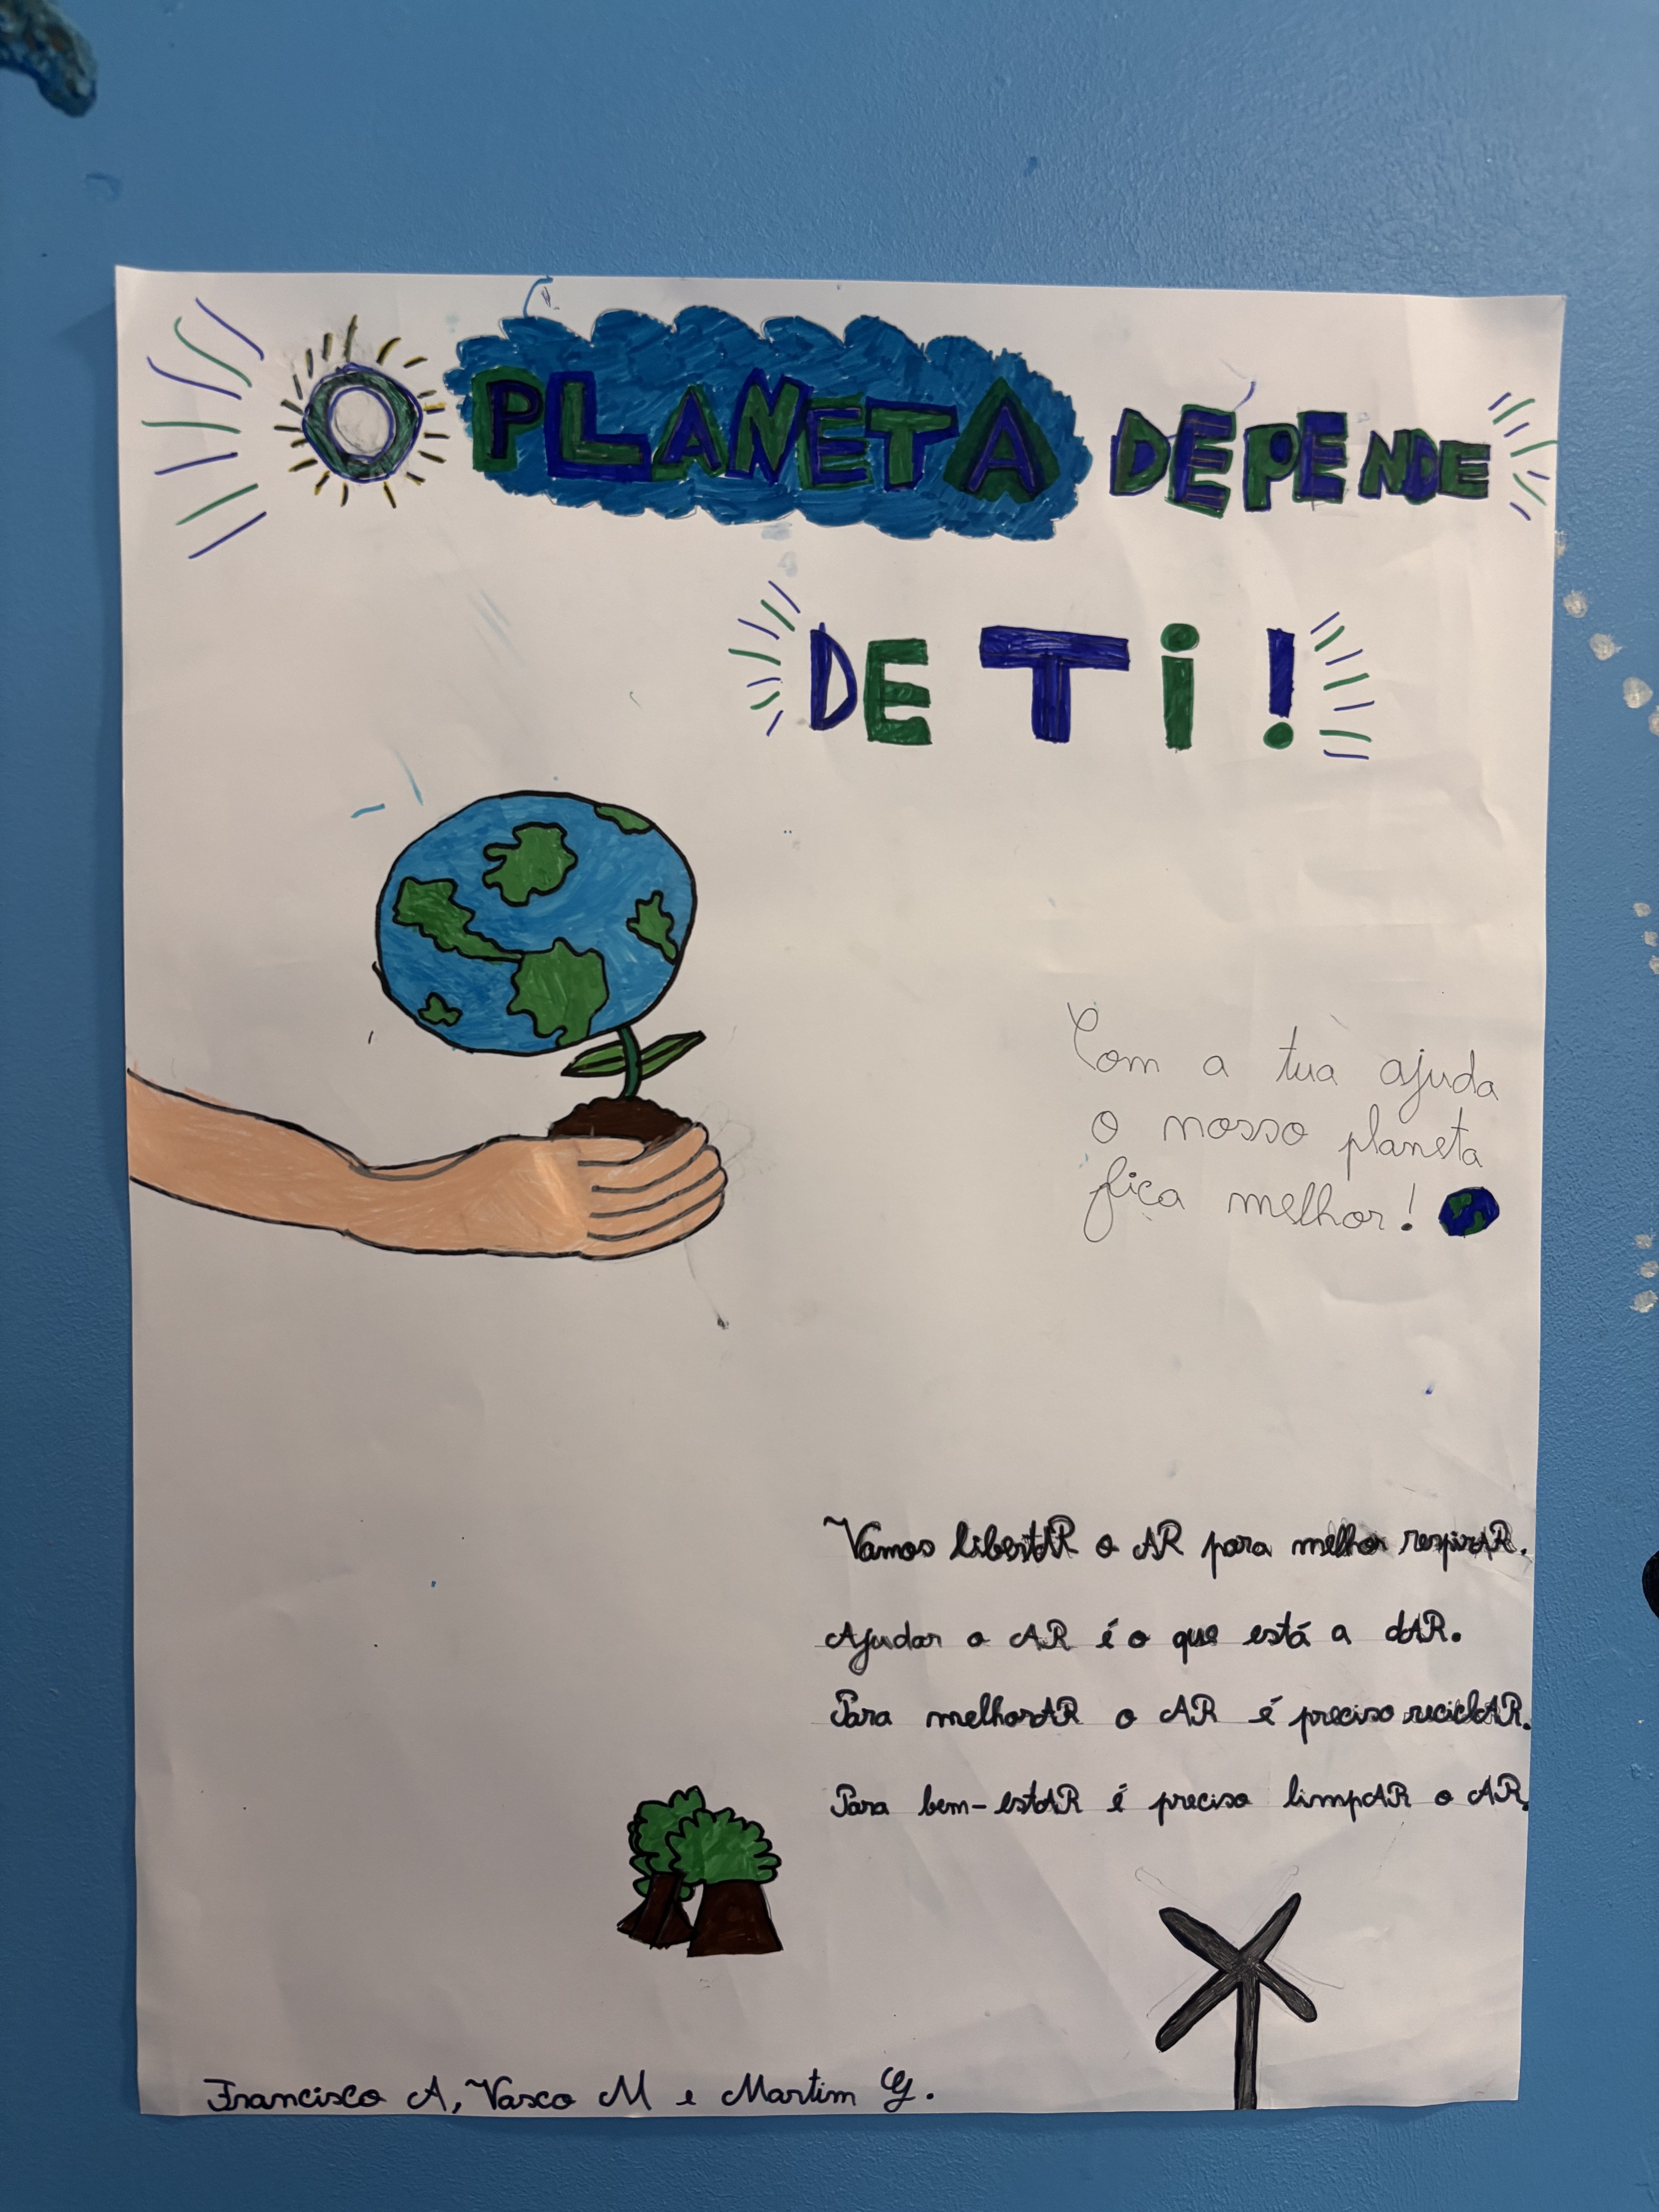 O PLANETA DEPENDE
DE Ti!
Com a tua ajuda
o nosso planeta
fica melhor!
Vamos libertAR o AR para melhor respirAR.
Ajudar o AR é o que está a dAR.
Para melhorAR o AR é preciso reciclAR.
Para bem-estAR é preciso limpAR o AR.
Francisco A, Vasco M e Martim G.